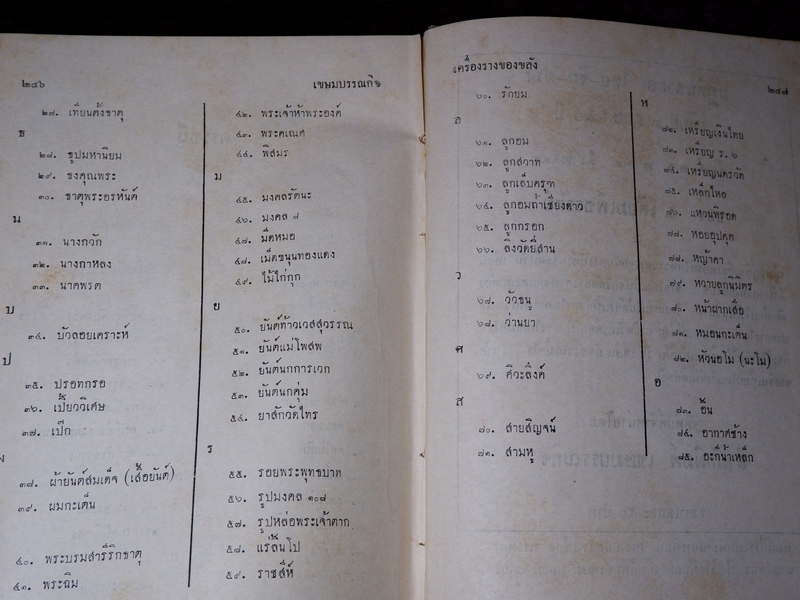 ๒๔๖
เขษมบรรณกิจ
๒๗. เทียนตั้งธาตุ
ธ
๒๘. ธูปมหานิยม
๒๙. ธงคุณพระ
๓๐. ธาตุพระอรหันต์
น
๓๑. นางกวัก
๓๒. นางกาหลง
๓๓. นาคพรต
บ
๓๔. บัวลอยเคราะห์
ป
๓๕. ปรอทกรอ
๓๖. เบี้ยวิเศษ
๓๗. เป๊ก
๓๘. ผ้ายันต์สมเด็จ (เสื้อยันต์)
๓๙. ผมกะเต็น
๔๐. พระบรมสารีริกธาตุ
๔๑. พระฉิม
๔๒. พระเจ้าห้าพระองค์
๔๓. พระคเณศ
๔๔. พิสมร
ม
๔๕. มงคลรัตนะ
๔๖. มงคล ๗
๔๗. มีดหมอ
๔๘. เม็ดขนุนทองแดง
๔๙. ไม้ไก่กุก
ย
๕๐. ยันต์ท้าวเวสสุวรรณ
๕๑. ยันต์แม่โพสพ
๕๒. ยันต์นกการเวก
๕๓. ยันต์นกคุ่ม
๕๔. ยาสักวัดไทร
ร
๕๕. รอยพระพุทธบาท
๕๖. รูปมงคล ๑๐๘
๕๗. รูปหล่อพระเจ้าตาก
๕๘. แร่ลันโป
๕๙. ราชสีห์
เครื่องรางของขลัง
๒๔๗
๖๐. รักยม
ล
๖๑. ลูกอม
๖๒. ลูกสวาท
๖๓. ลูกเล็บครุฑ
๖๔. ลูกอมถ้ำเชียงดาว
๖๕. ลูกกรอก
๖๖. ลิงวัดยี่สาน
ว
๖๗. วัวธนู
๖๘. ว่านยา
ศ
๖๙. ศิวะลึงค์
ส
๗๐. สายสิญจน์
๗๑. สามหู
ห
๗๒. เหรียญเงินไทย
๗๓. เหรียญ ร. ๖
๗๔. เหรียญนครวัด
๗๕. เหล็กไหล
๗๖. แหวนพิรอด
๗๗. หอยอุปคุต
๗๘. หญ้าคา
๗๙. หวายลูกนิมิตร
๘๐. หน้าผากเสือ
๘๑. หมอนกะเต็น
๘๒. หัวนอโม (นะโม)
อ
๘๓. อิ้น
๘๔. อากาศช้าง
๘๕. อะกีน้ำเหล็ก